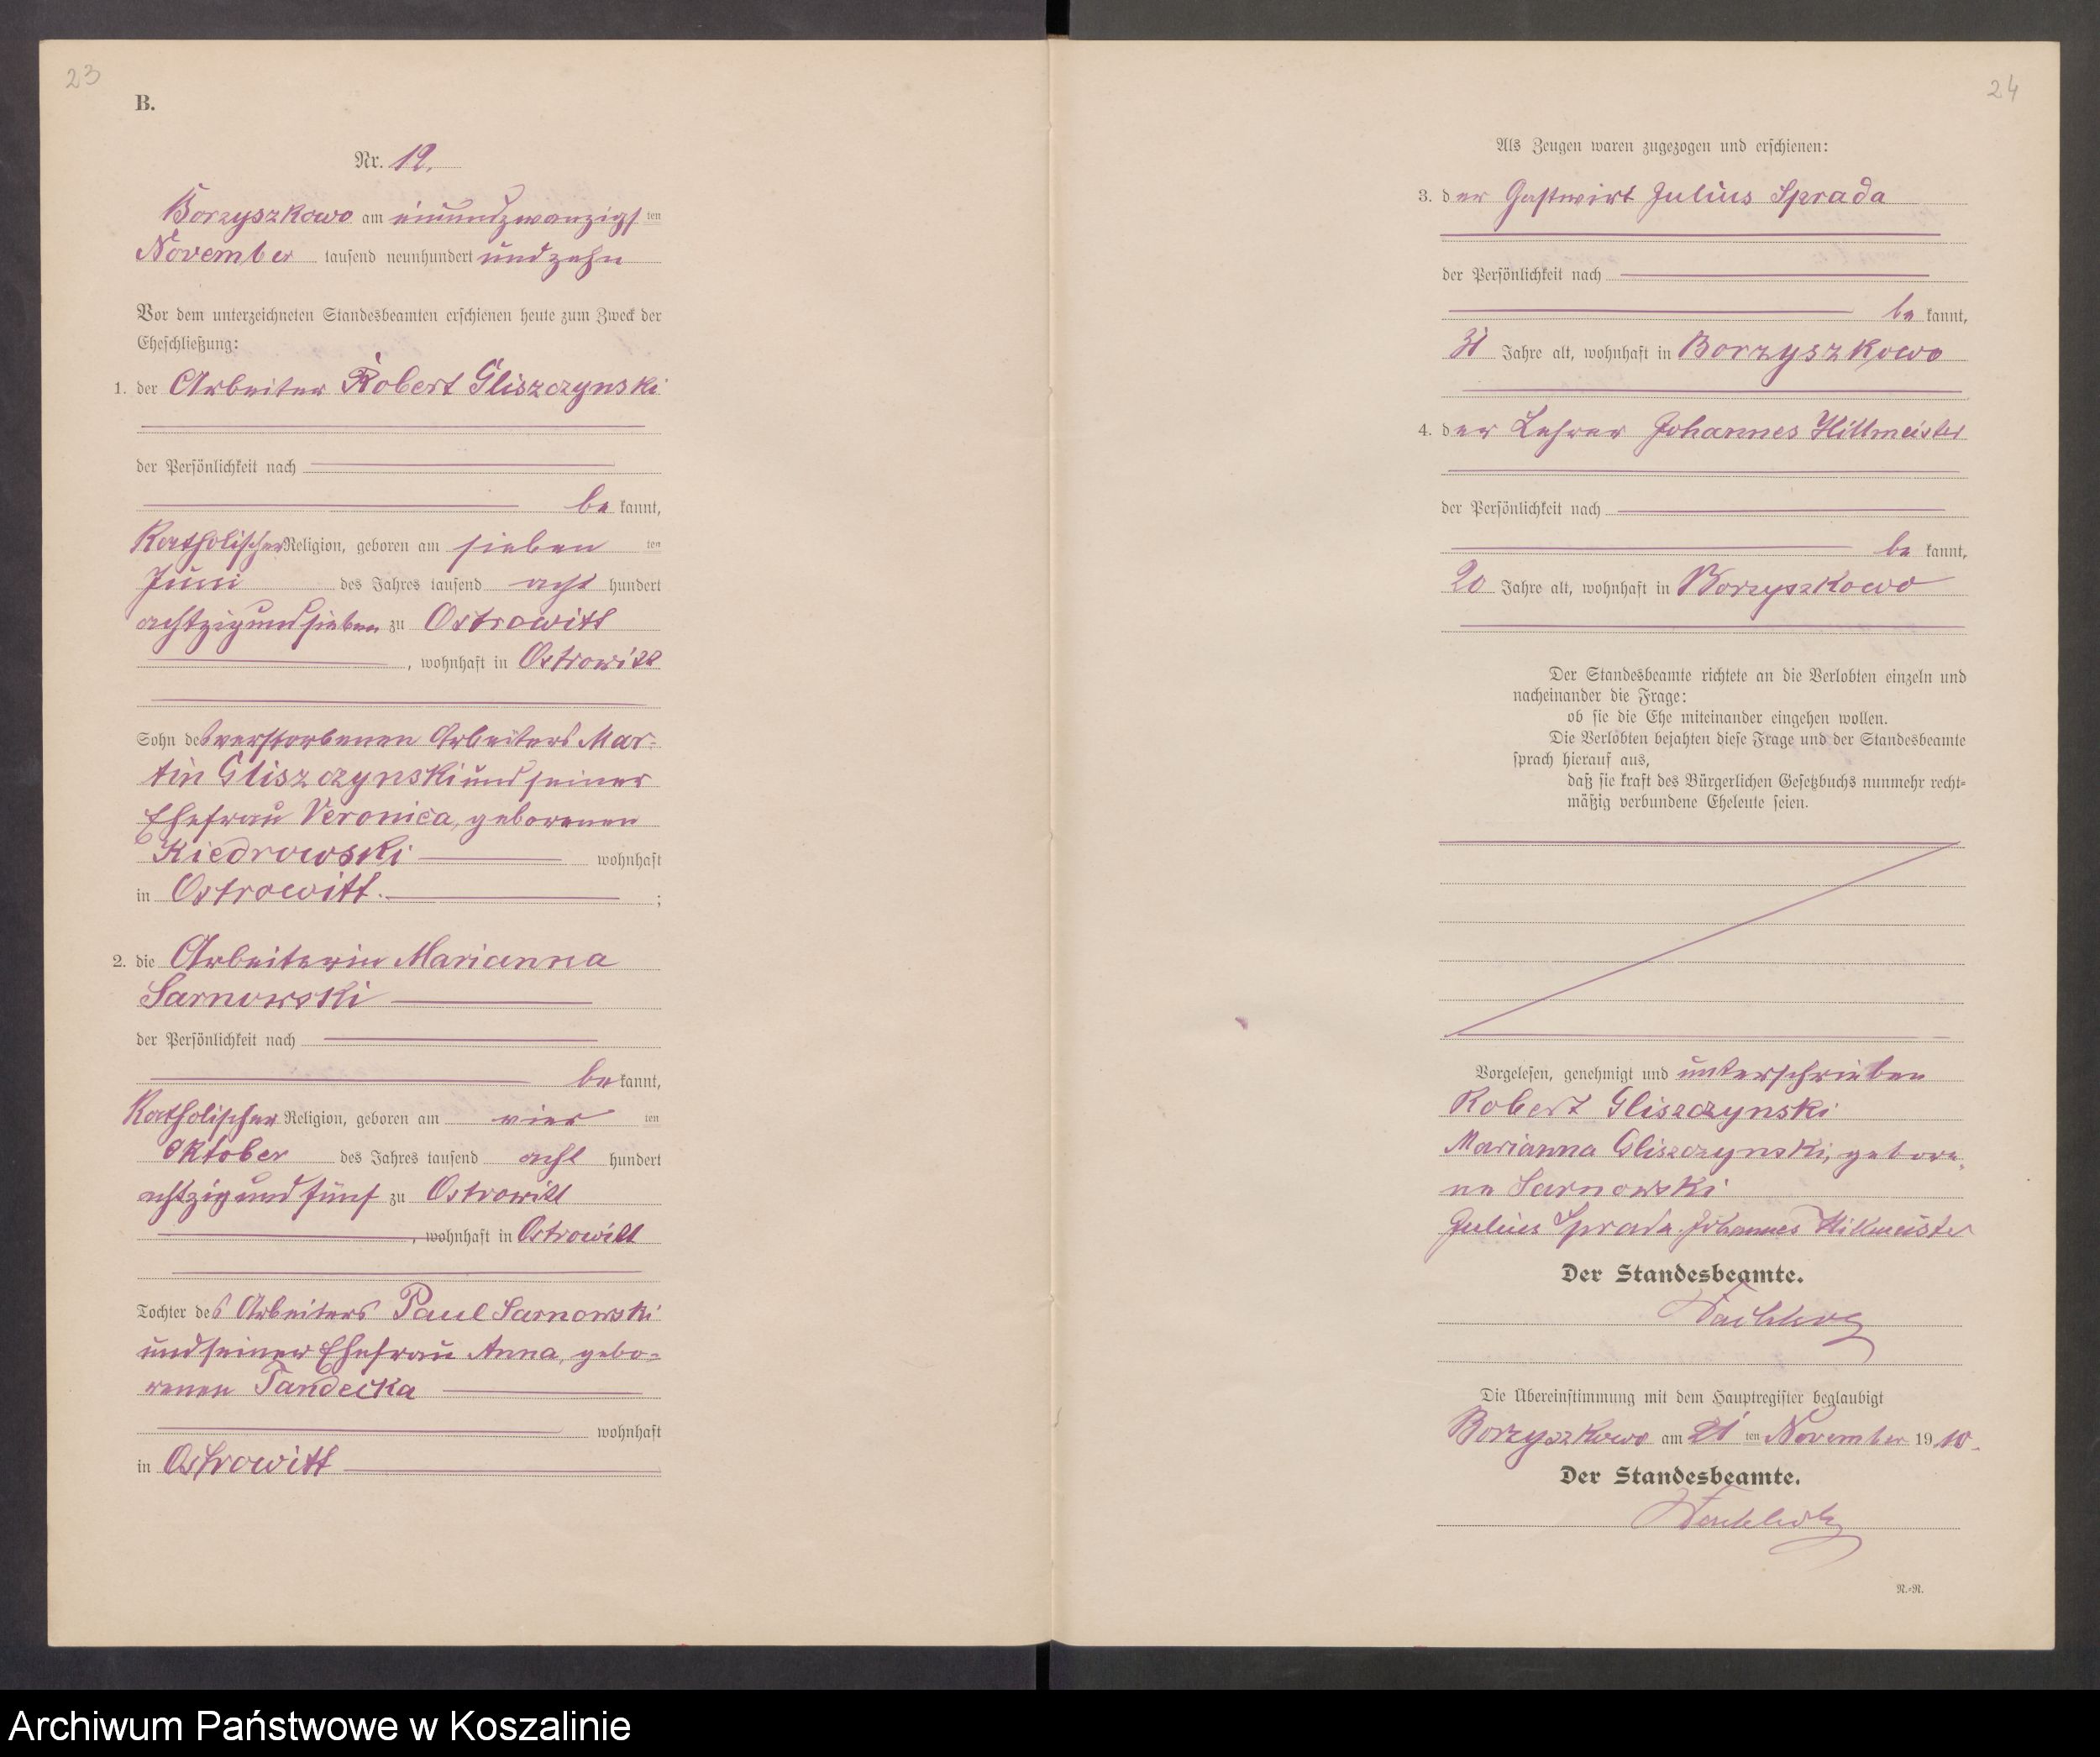 23
B.
Nr. 12.
Borzyszkowo am einundzwanzigsten
November tausend neunhundert und zehn
Vor dem unterzeichneten Standesbeamten erschienen heute zum Zweck der
Eheschließung:
1. der Arbeiter Robert Gliszczynski
der Persönlichkeit nach
be kannt,
Katholischer Religion, geboren am sieben ten
Juni des Jahres tausend acht hundert
achtzig und sieben zu Ostrowitt
, wohnhaft in Ostrowitt
Sohn des verstorbenen Arbeiters Mar-
tin Gliszczynski und seiner
Ehefrau Veronica, geborenen
Kiedrowski wohnhaft
in Ostrowitt. ;
2. die Arbeiterin Marianna
Sarnowski
der Persönlichkeit nach
be kannt,
Katholischer Religion, geboren am vier ten
Oktober des Jahres tausend acht hundert
achtzig und fünf zu Ostrowitt
, wohnhaft in Ostrowitt
Tochter des Arbeiters Paul Sarnowski
und seiner Ehefrau Anna, gebo-
renen Tandecka
wohnhaft
in Ostrowitt
24
Als Zeugen waren zugezogen und erschienen:
3. der Gastwirt Julius Sprada
der Persönlichkeit nach
be kannt,
31 Jahre alt, wohnhaft in Borzyszkowo
4. der Lehrer Johannes Hillmeister
der Persönlichkeit nach
be kannt,
20 Jahre alt, wohnhaft in Borzyszkowo
Der Standesbeamte richtete an die Verlobten einzeln und
nacheinander die Frage:
ob sie die Ehe miteinander eingehen wollen.
Die Verlobten bejahten diese Frage und der Standesbeamte
sprach hierauf aus,
daß sie kraft des Bürgerlichen Gesetzbuchs nunmehr recht-
mäßig verbundene Eheleute seien.
Vorgelesen, genehmigt und unterschrieben
Robert Gliszczynski
Marianna Gliszczynski, gebore-
ne Sarnowski
Julius Sprada Johannes Hillmeister
Der Standesbeamte.
Die Übereinstimmung mit dem Hauptregister beglaubigt
Borzyszkowo am 21 ten November 19 10.
Der Standesbeamte.
R.-R.
Archiwum Państwowe w Koszalinie